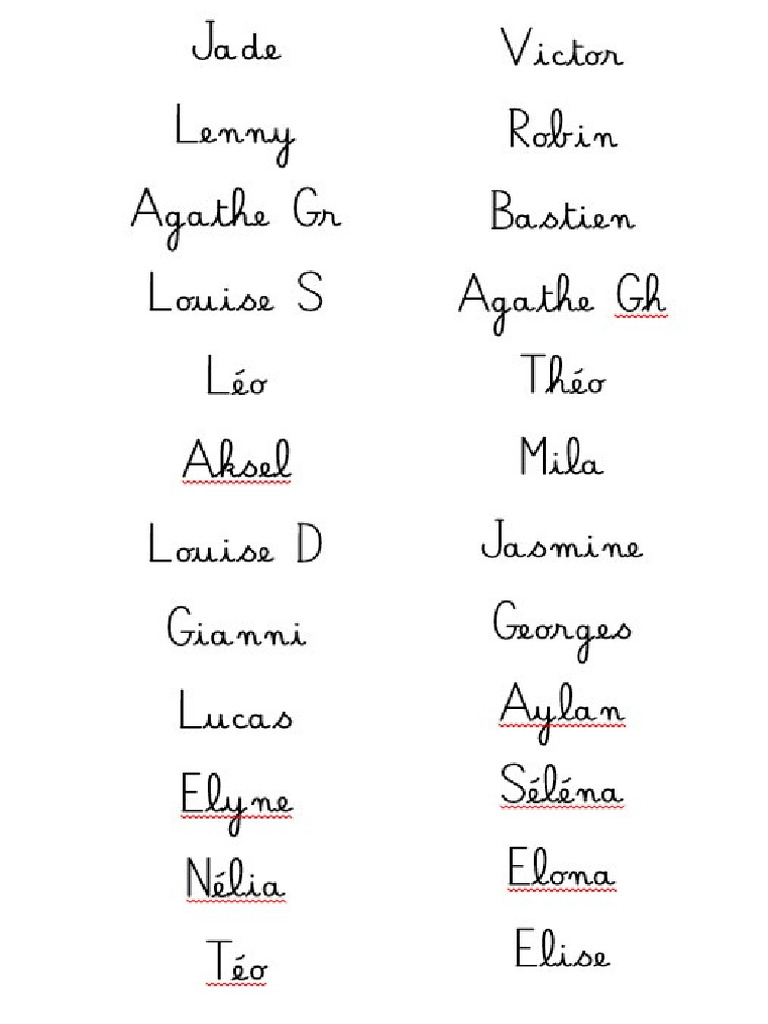 Jade
Victor
Lenny
Robin
Agathe Gr
Bastien
Louise S
Agathe Gh
Léo
Théo
Aksel
Mila
Louise D
Jasmine
Gianni
Georges
Lucas
Aylan
Elyne
Séléna
Nélia
Elona
Téo
Elise